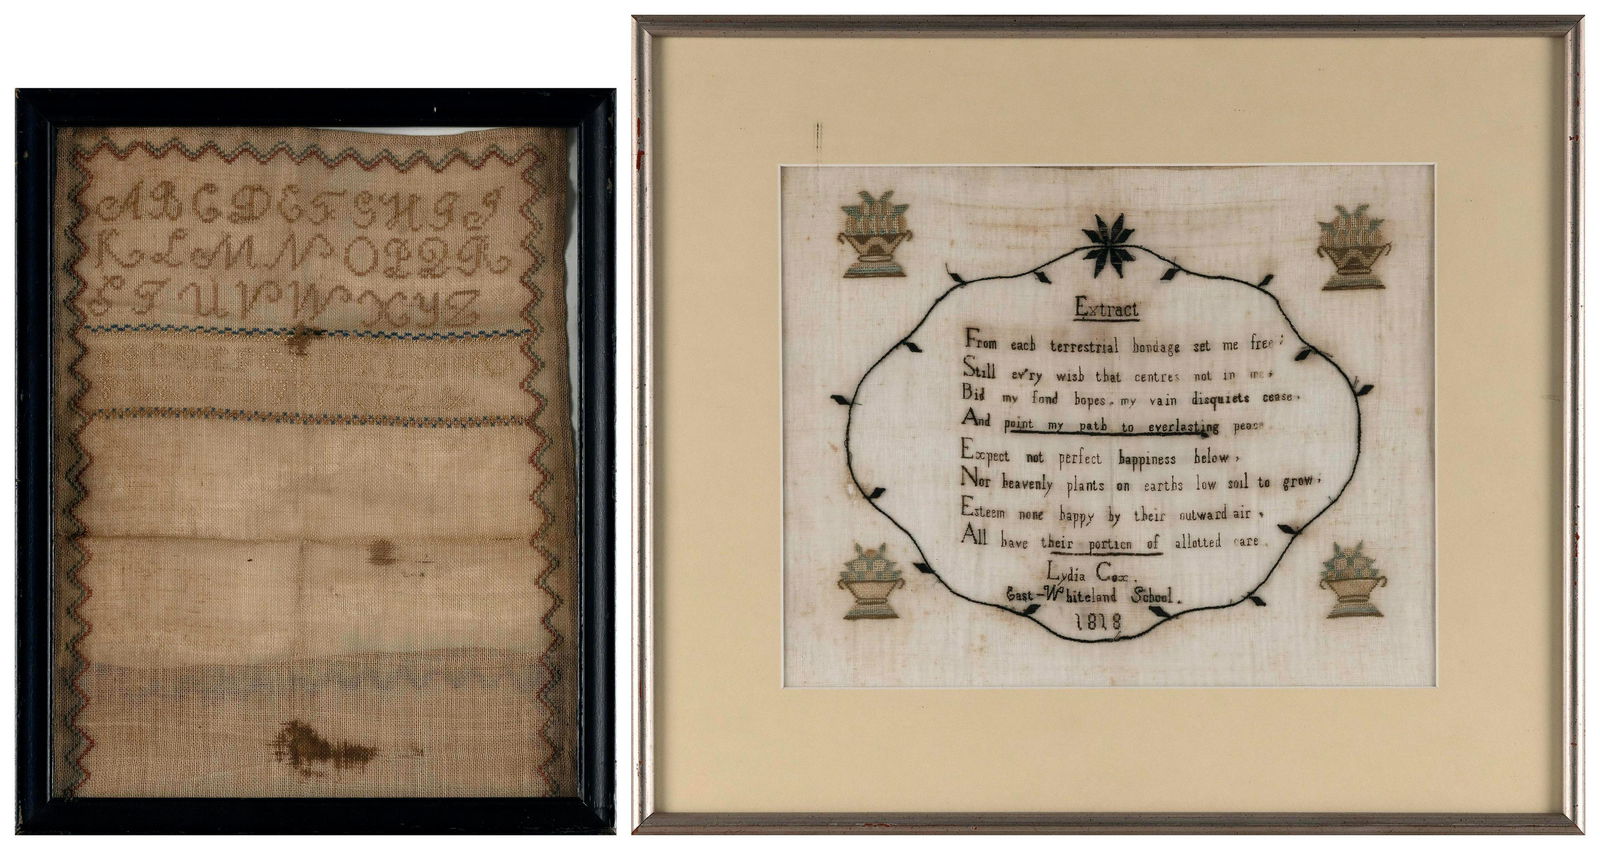 A B C D E F G H I J
K L M N O P Q R
S T U V W X Y Z
Extract
From each terrestrial bondage set me free;
Still ev'ry wish that centres not in me,
Bid my fond hopes, my vain disquiets cease,
And point my path to everlasting peace
Expect not perfect happiness below,
Nor heavenly plants on earths low soil to grow;
Esteem none happy by their outward air,
All have their portion of allotted care.
Lydia Cox.
East-Whiteland School.
1818